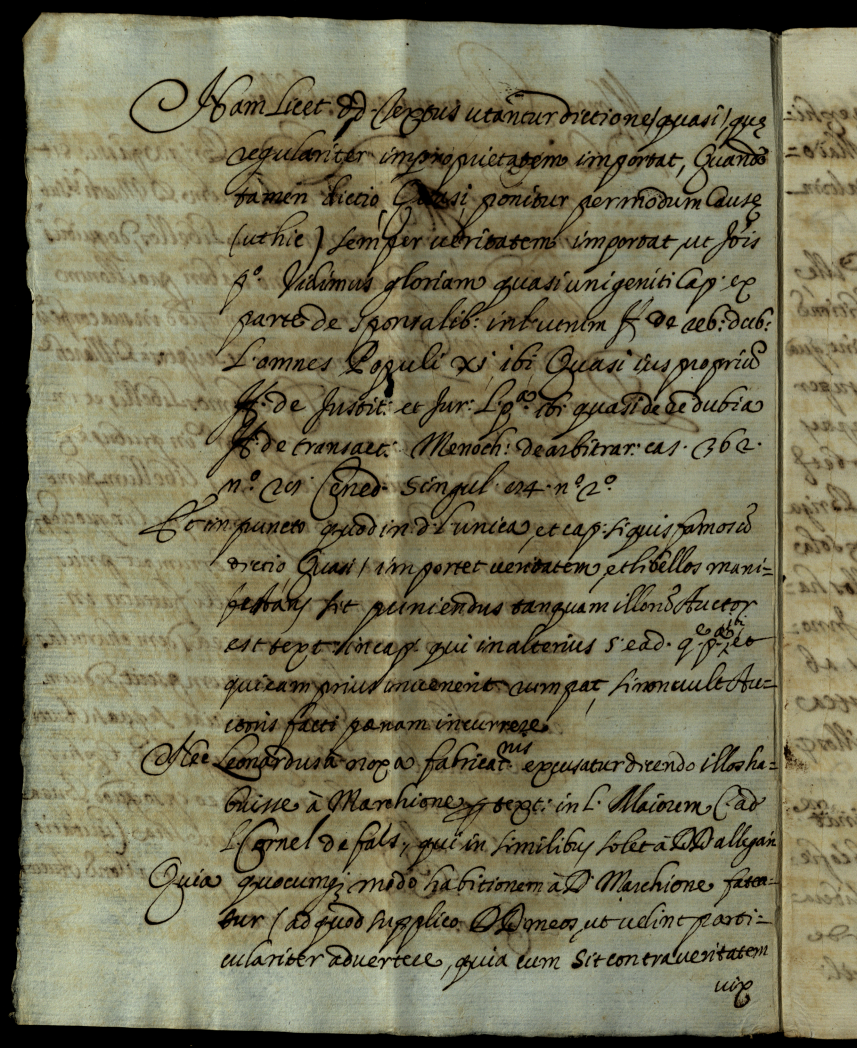 Nam licet dd. textus utantur dictione (quasi) quę
regulariter improprietatem importat, Quando
tamen dictio, Quasi, ponitur per modum Causę
(ut hic) semper veritatem importat ut Jois
p.º Vidimus gloriam quasi unigeniti Cap. ex
parte de sponsalib: in l. utrum ff. de reb: dub:
L. omnes Populi xi ibi Quasi ius propriũ
ff. de Justit: et Jur: L. pª. ibi quasi de re dubia
ff. de transact: Menoch: de arbitrar: cas. 362.
n.º 21. Cened. Singul. 24. n.º 2.º
Et in puncto quod in d. l. unica, et cap. si quis famosũ
dictio Quasi, importet veritatem, et libellos mani=
festans sit puniendus tanquam illorũ Auctor
est text. in cap. qui in alterius 5. ead. q.e p.ª ibi et
qui eam prius invenerit rumpat, si non vult Au=
ctoris facti pœnam incurrere
Nec Leonardus à fabricat.nus excusatur dicendo illos ha=
buisse à Marchione text: in l. Maiorum C. ad
l. Cornel de fals., qui in similibus solet à DD allegari
Quia quocumq; modo habitionem à D. Marchione fatea=
tur (ad quod supplico DD meos, ut velint parti=
culariter advertere, quia cum sit contra veritatem
vix